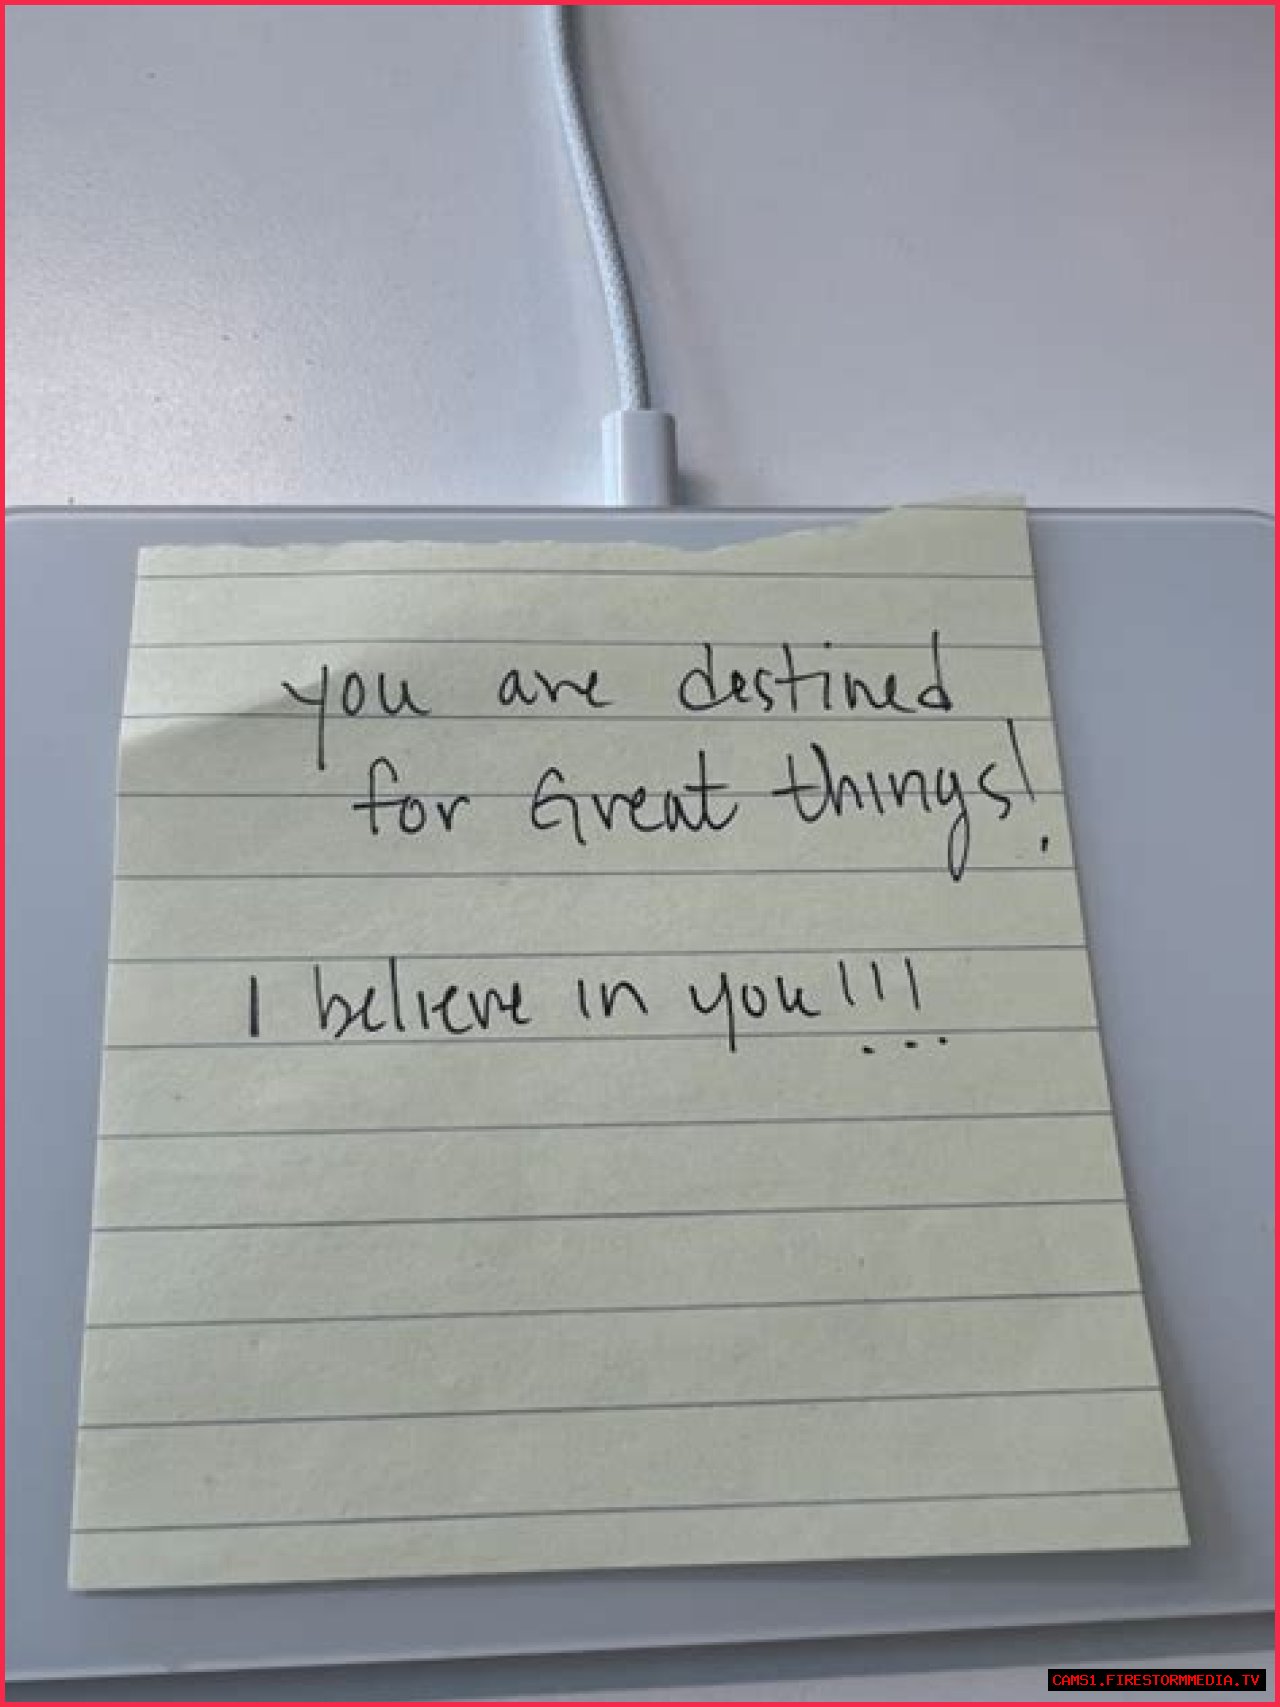 you are destined
for Great things!
I believe in you!!!
CAMS1.FIRESTORMMEDIA.TV